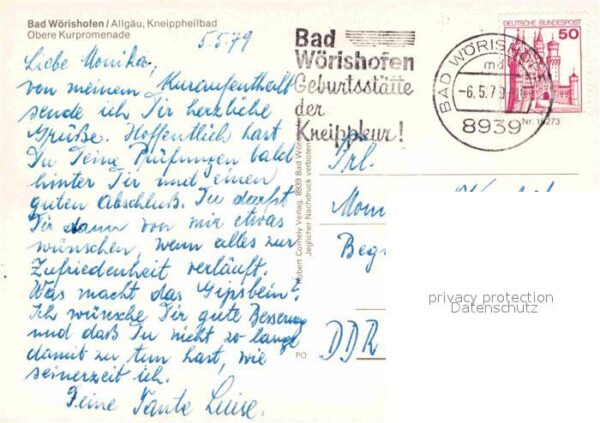 Bad Wörishofen / Allgäu, Kneippheilbad
Obere Kurpromenade
5.5.79
Liebe Monika,
von meinem Kuraufenthalt
sende ich Dir herzliche
Grüße. Hoffentlich hast
Du Deine Prüfungen bald
hinter Dir und einen
guten Abschluß. Du darfst
Dir dann von mir etwas
wünschen, wenn alles zur
Zufriedenheit verläuft.
Was macht das Gipsbein?
Ich wünsche Dir gute Besserung
und daß Du nicht so lange
damit zu tun hast, wie
seinerzeit ich.
Deine Tante Luise.
Bad
Wörishofen
Geburtsstätte
der
Kneippkur!
BAD WÖRISHOFEN
md
-6.5.79
8939
DEUTSCHE BUNDESPOST
50
Nr. 16273
Robert Cornely Verlag, 8939 Bad Wöri
Jeglicher Nachdruck verboten
Frl.
Mon
Beg
DDR
PO
privacy protection
Datenschutz